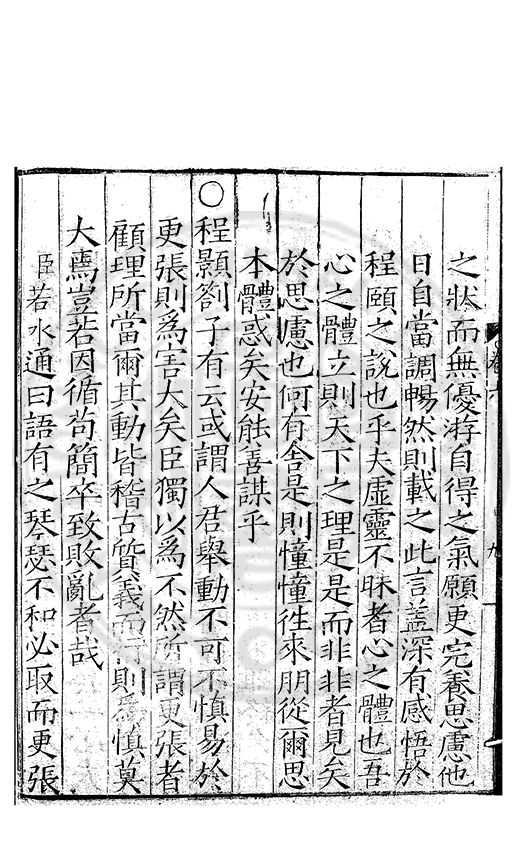 之狀而無優游自得之氣願更完養思慮他
日自當調暢然則載之此言葢深有感悟於
程頤之說也乎夫虚靈不昧者心之體也吾
心之體立則天下之理是是而非非者見矣
於思慮也何有舍是則憧憧往來朋從爾思
本體惑矣安能善謀乎
○程顥劄子有云或謂人君舉動不可不慎易於
更張則爲害大矣臣獨以爲不然所謂更張者
顧理所當爾其動皆稽古質義而行則爲慎莫
大焉豈若因循苟簡卒致敗亂者哉
臣若水通曰語有之琴瑟不和必取而更張